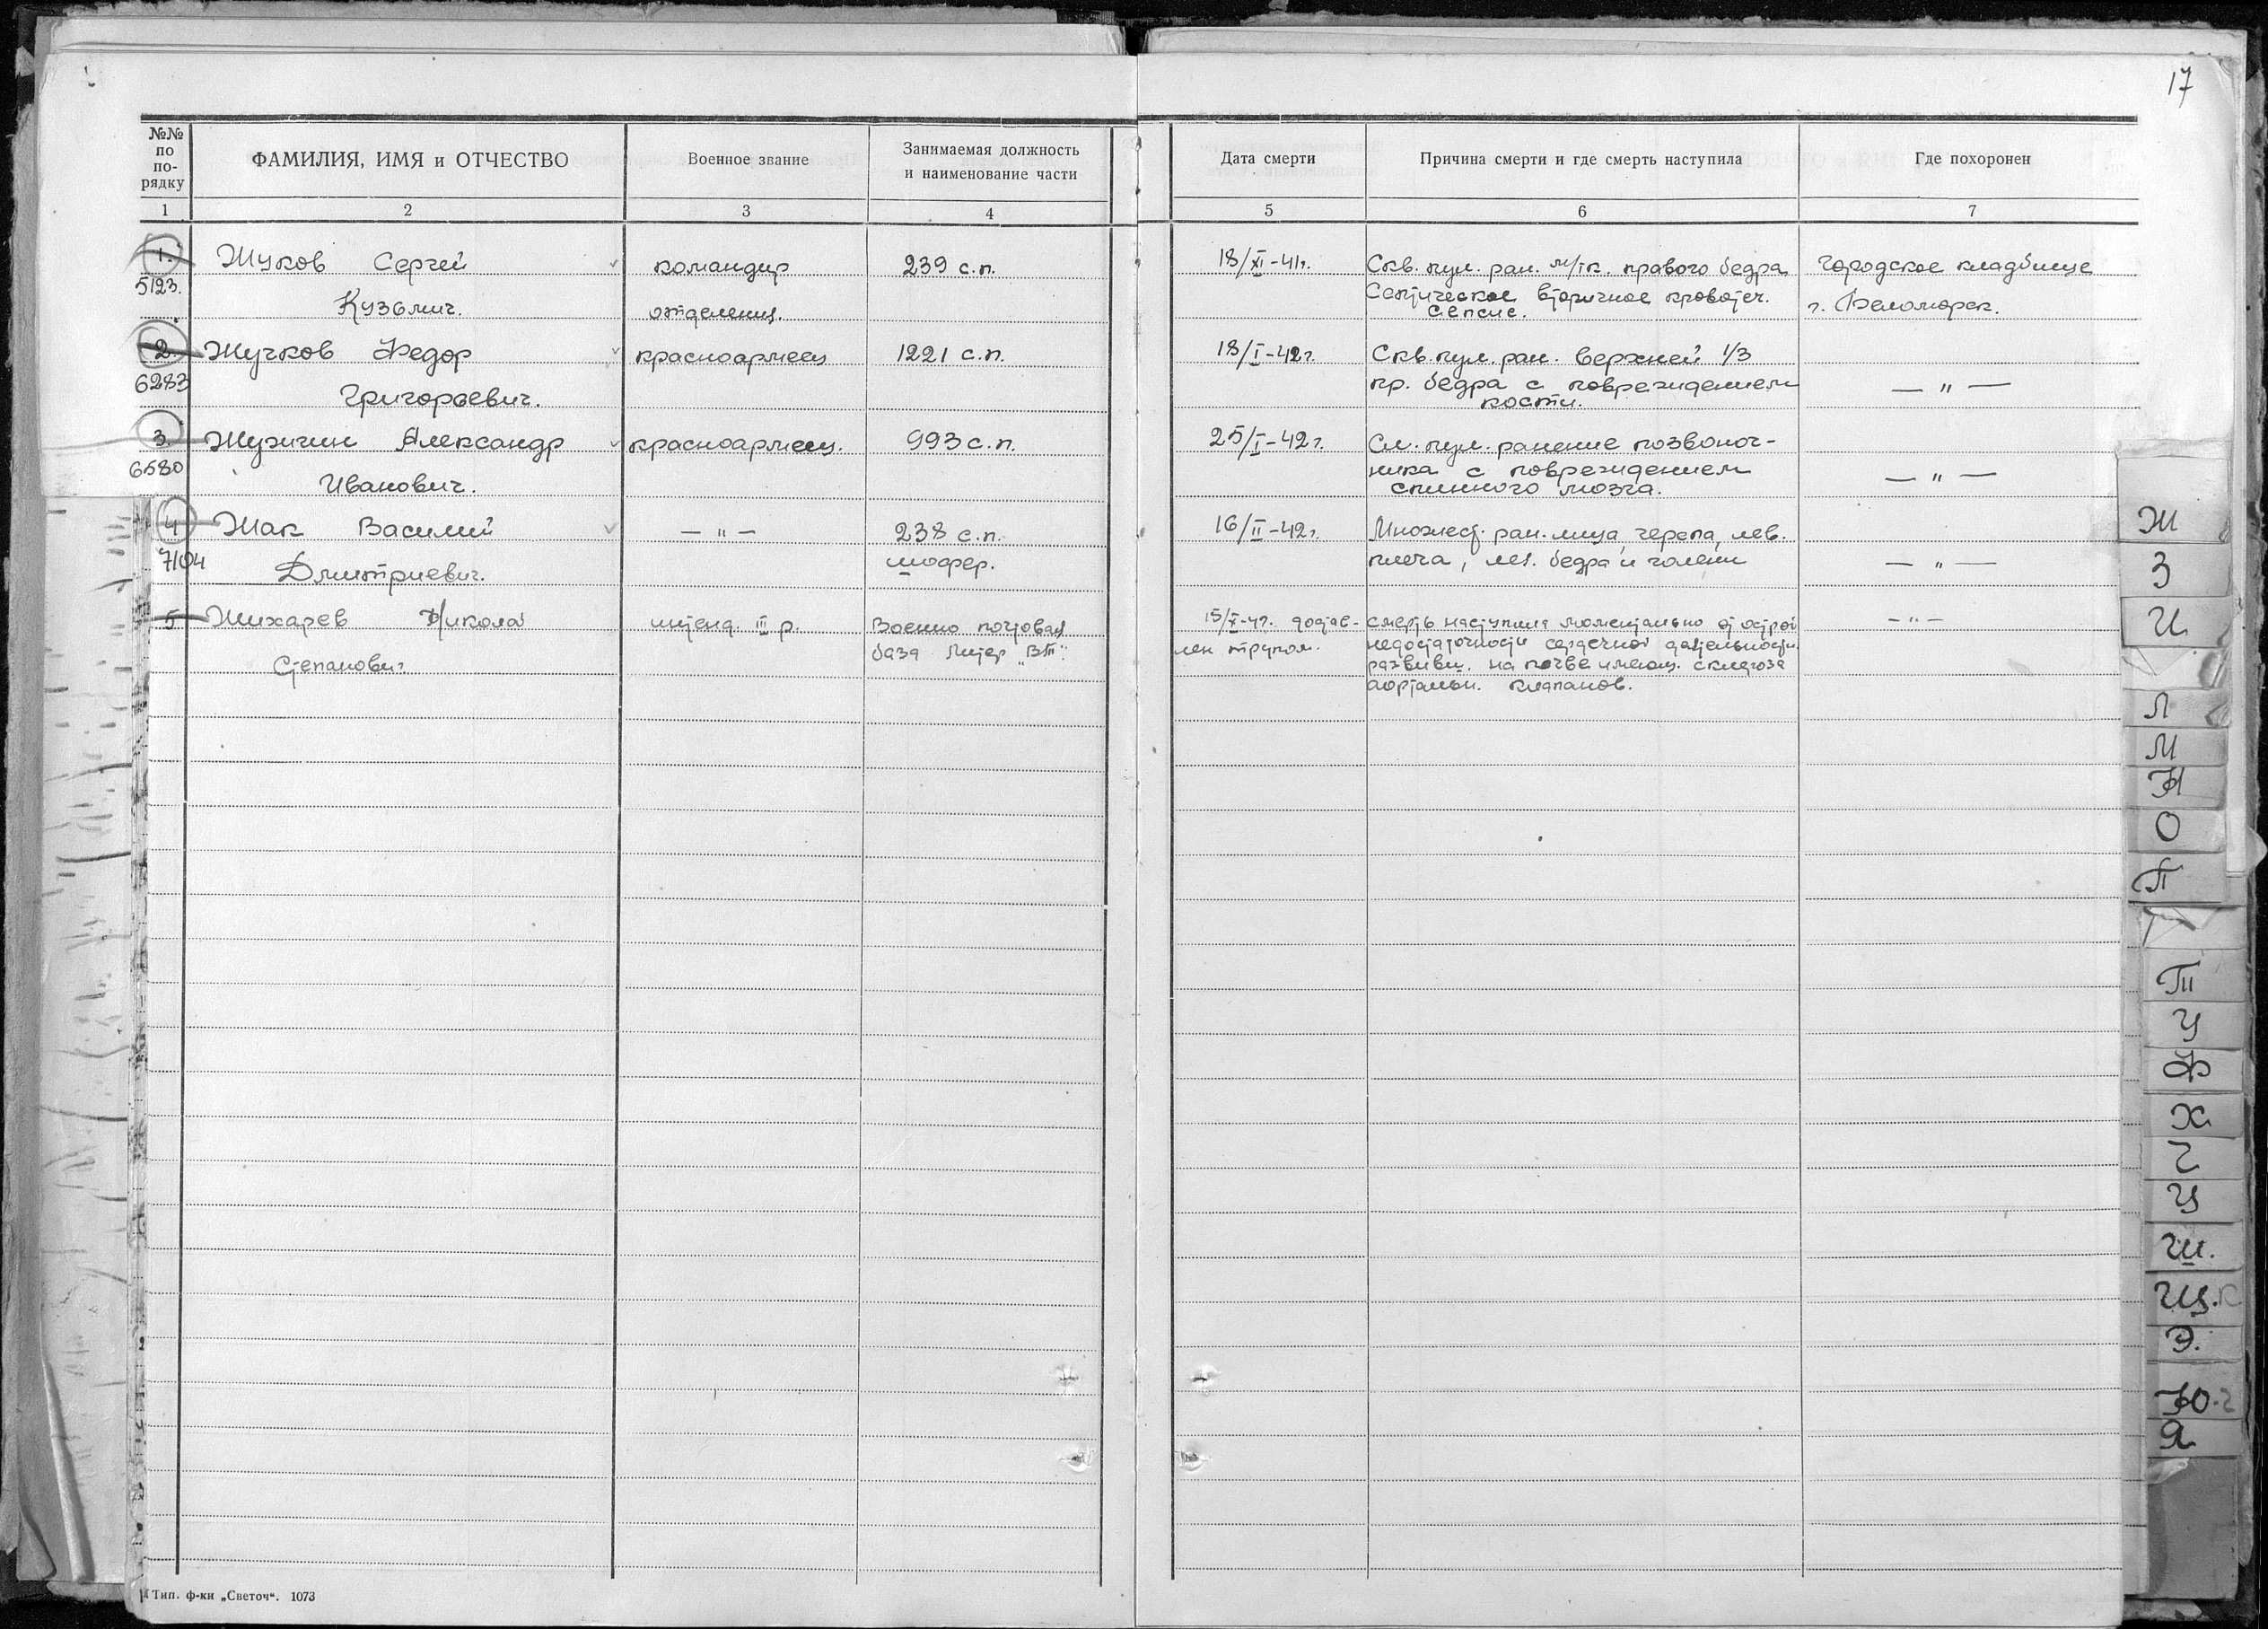 17
№№ по по-рядку
ФАМИЛИЯ, ИМЯ и ОТЧЕСТВО
Военное звание
Занимаемая должность
и наименование части
Дата смерти
Причина смерти и где смерть наступила
Где похоронен
1 2 3 4 5 6 7
1. Жуков Сергей командир 239 с.п. 18/XI-41г. Скв. пул. ран. м/тк. правого бедра Городское кладбище
5123. Кузьмич. отделения. Септическое вторичное кровотеч. г. Беломорск.
Сепсис.
2. Жучков Федор красноармеец 1221 с.п. 18/I-42г. Скв. пул. ран. верхней 1/3
6283 Григорьевич. пр. бедра с повреждением — " —
кости.
3. Журичин Александр красноармеец. 993 с.п. 25/I-42г. Сл. пул. ранение позвоноч-
6580 Иванович. ника с повреждением — " —
спинного мозга.
4 Жак Василий — " — 238 с.п. 16/II-42г. Множест. ран. лица, черепа, лев.
7104 Дмитриевич. шофер. плеча, лев. бедра и голени — " —
5 Жихарев Николай интенд. III р. Военно почтовая 15/X-41г. достав- смерть наступила моментально от острой — " —
Степанович база Литер „ВТ". лен трупом. недостаточности сердечной деятельности
развивш. на почве имеющ. склероза
аортальн. клапанов.
Ж
З
И
Л
М
Н
О
П
Т
У
Ф
Х
Ч
Ц
Ш.
Щ.
Э.
Ю
Я
Тип. ф-ки „Светоч". 1073